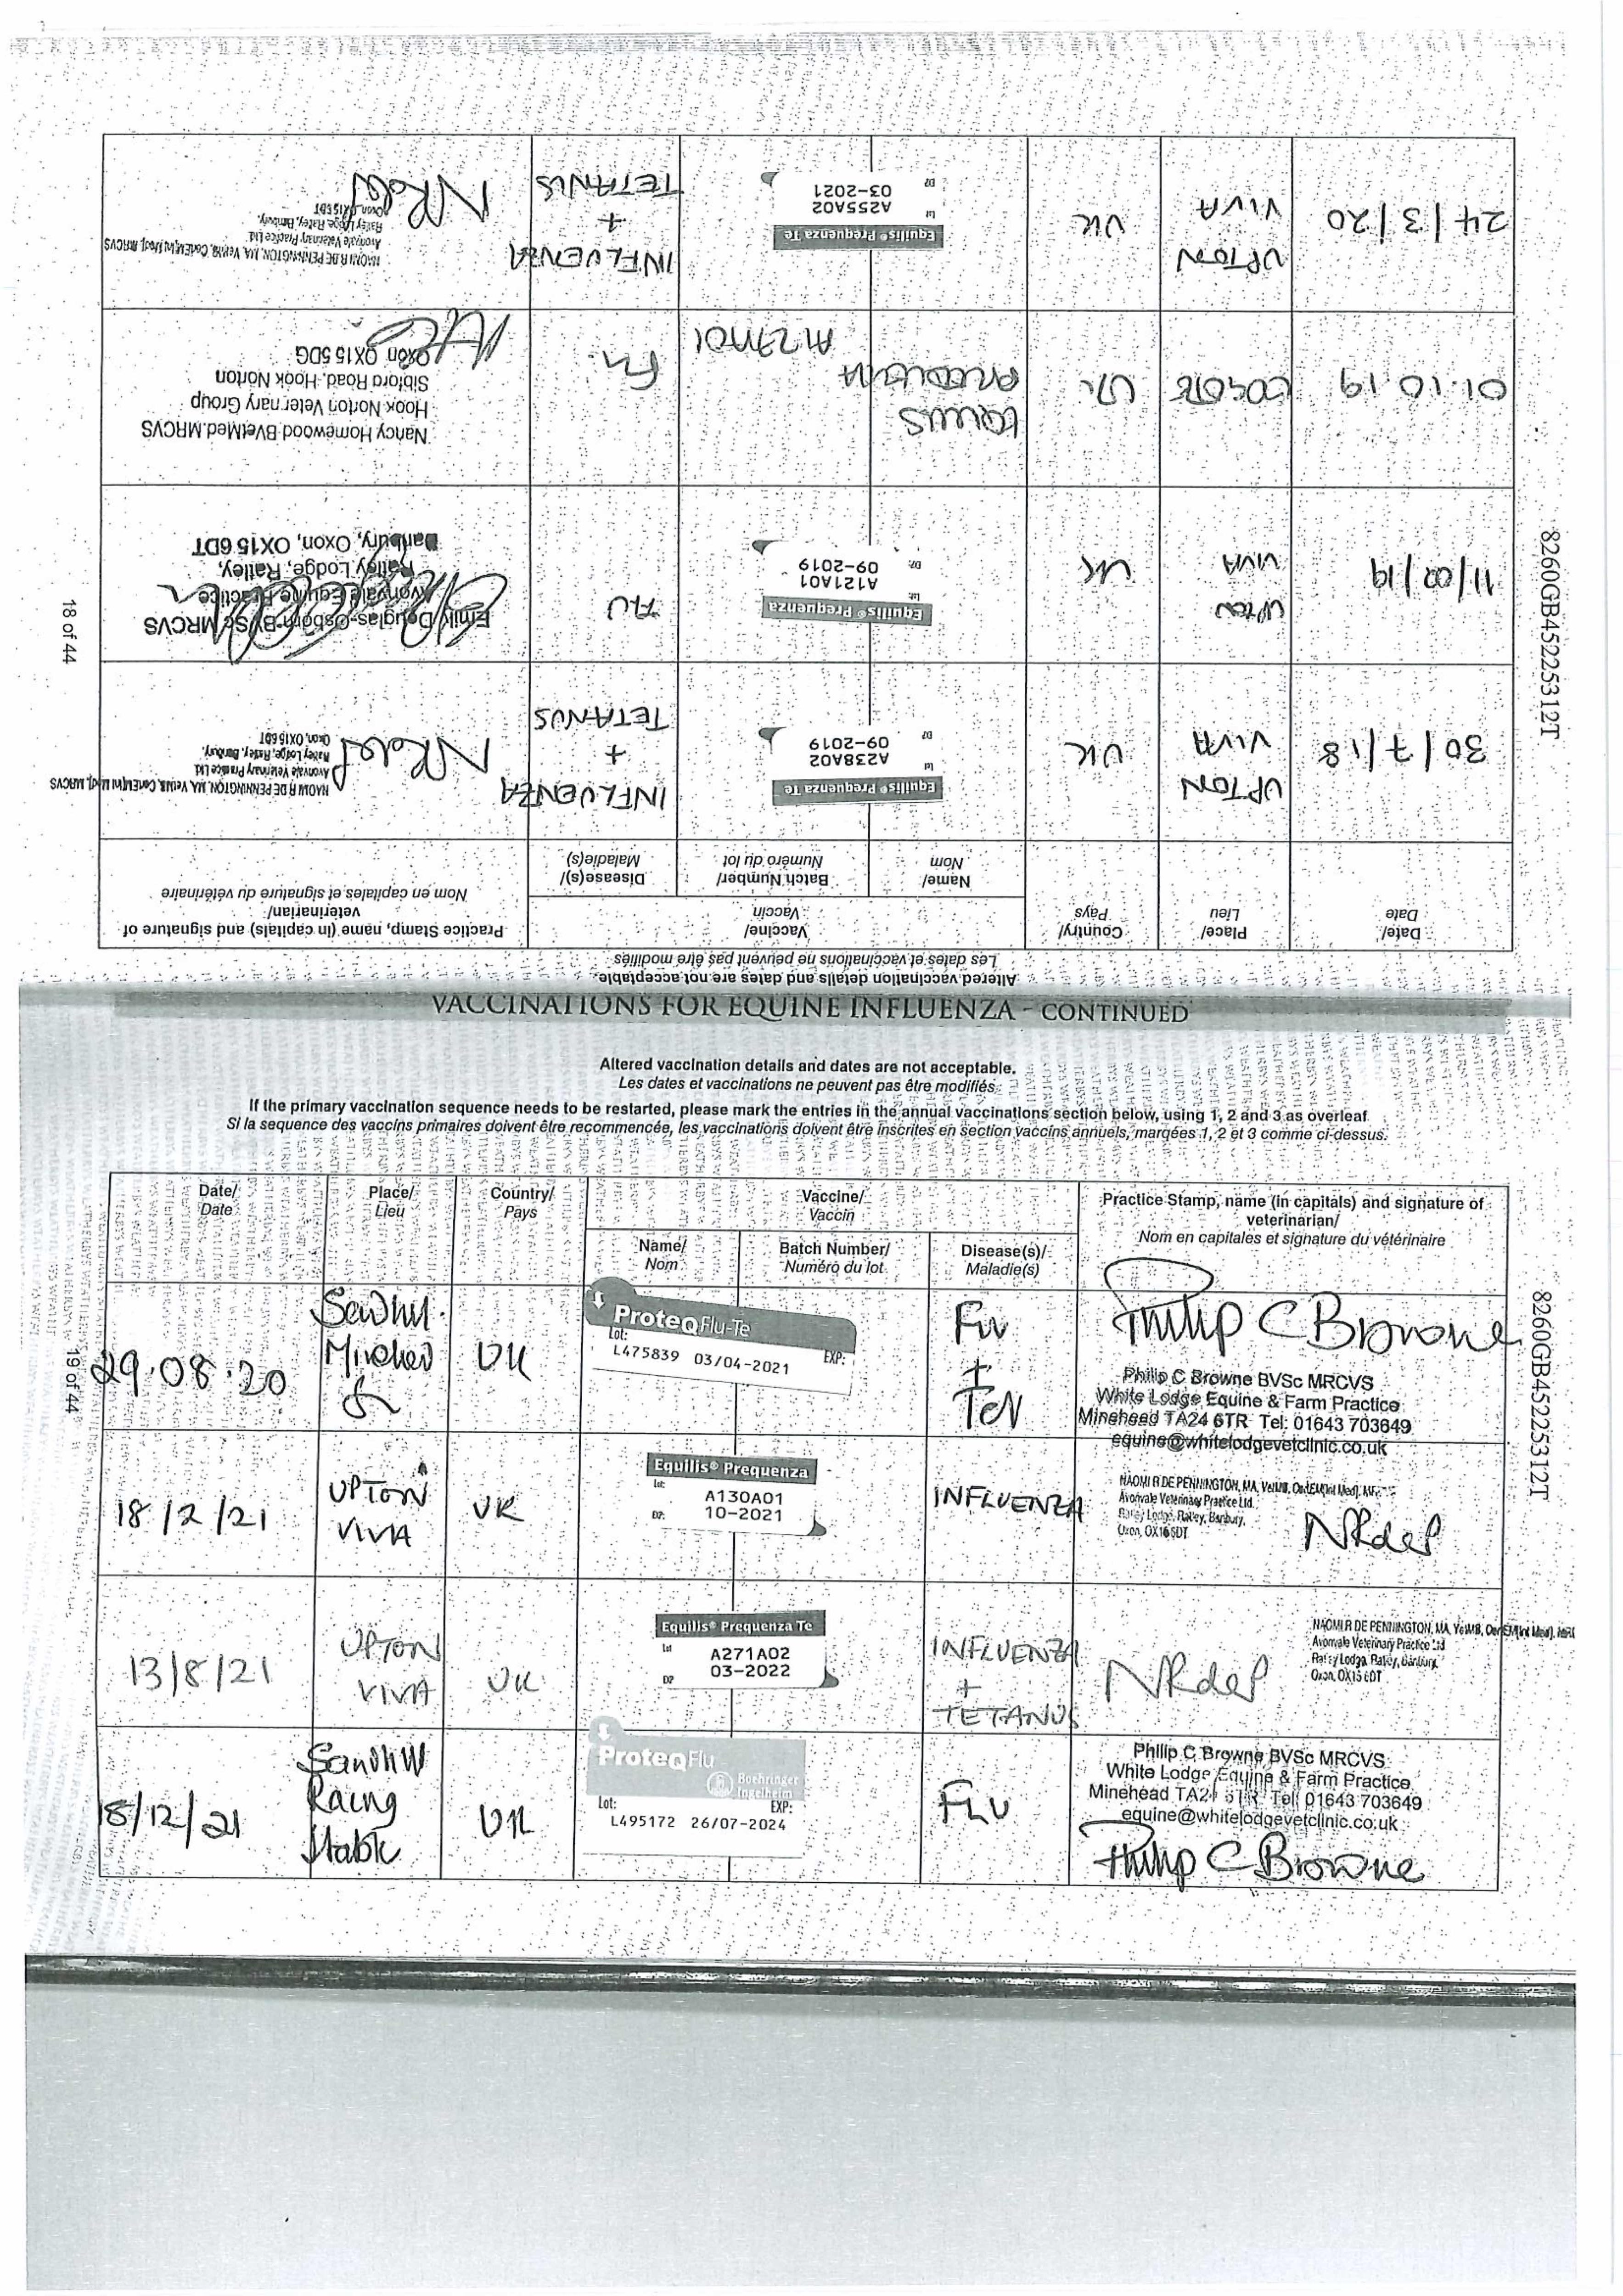 Altered vaccination details and dates are not acceptable.
Les dates et vaccinations ne peuvent pas être modifiés
Date/
Date
Place/
Lieu
Country/
Pays
Vaccine/
Vaccin
Practice Stamp, name (in capitals) and signature of
veterinarian/
Nom en capitales et signature du vétérinaire
Name/
Nom
Batch Number/
Numéro du lot
Disease(s)/
Maladie(s)
30/7/18
UPTON
VIVA
UK
Equilis® Prequenza Te
Lot
A238A02
09-2019
INFLUENZA
+
TETANUS
NAOMI R DE PENNINGTON, MA, VetMB, CertEM(Int Med), MRCVS
Avonvale Veterinary Practice Ltd.
Ratley Lodge, Ratley, Banbury,
Oxon, OX15 6DT
NRdeP
11/02/19
UPTON
VIVA
UK
Equilis® Prequenza
Lot:
A121A01
09-2019
FLU
Emily Douglas-Osborn BVSc MRCVS
Avonvale Equine Practice
Ratley Lodge, Ratley,
Banbury, Oxon, OX15 6DT
01.10.19
UK
Flu
Nancy Homewood BVetMed MRCVS
Hook Norton Veterinary Group
Sibford Road, Hook Norton
Oxon OX15 5DG
24/3/20
UPTON
VIVA
UK
Equilis® Prequenza Te
Lot
A255A02
03-2021
INFLUENZA
+
TETANUS
NAOMI R DE PENNINGTON, MA, VetMB, CertEM(Int Med), MRCVS
Avonvale Veterinary Practice Ltd.
Ratley Lodge, Ratley, Banbury,
Oxon, OX15 6DT
NRdeP
18 of 44
8260GB45225312T
VACCINATIONS FOR EQUINE INFLUENZA - CONTINUED
Altered vaccination details and dates are not acceptable.
Les dates et vaccinations ne peuvent pas être modifiés
If the primary vaccination sequence needs to be restarted, please mark the entries in the annual vaccinations section below, using 1, 2 and 3 as overleaf
Si la sequence des vaccins primaires doivent être recommencée, les vaccinations doivent être inscrites en section vaccins annuels, marqées 1, 2 et 3 comme ci-dessus.
Date/
Date
Place/
Lieu
Country/
Pays
Vaccine/
Vaccin
Practice Stamp, name (in capitals) and signature of
veterinarian/
Nom en capitales et signature du vétérinaire
Name/
Nom
Batch Number/
Numéro du lot
Disease(s)/
Maladie(s)
29.08.20
UK
ProteqFlu-Te
Lot:
EXP:
L475839 03/04-2021
Flu
+
Tet
Philip C Browne
Philip C Browne BVSc MRCVS
White Lodge Equine & Farm Practice
Minehead TA24 6TR Tel: 01643 703649
equine@whitelodgevetclinic.co.uk
18/2/21
UPTON
VIVA
UK
Equilis® Prequenza
Lot:
A130A01
10-2021
INFLUENZA
NAOMI R DE PENNINGTON, MA, VetMB, CertEM(Int Med), MRCVS
Avonvale Veterinary Practice Ltd.
Ratley Lodge, Ratley, Banbury,
Oxon, OX15 6DT
NRdeP
13/8/21
UPTON
VIVA
UK
Equilis® Prequenza Te
Lot
A271A02
03-2022
INFLUENZA
+
TETANUS
NRdeP
NAOMI R DE PENNINGTON, MA, VetMB, CertEM(Int Med), MRCVS
Avonvale Veterinary Practice Ltd
Ratley Lodge, Ratley, Banbury,
Oxon, OX15 6DT
18/12/21
Sandhill
Racing
Stable
UK
ProteqFlu
Boehringer
Ingelheim
Lot:
EXP:
L495172 26/07-2024
FLU
Philip C Browne BVSc MRCVS
White Lodge Equine & Farm Practice
Minehead TA24 6TR Tel: 01643 703649
equine@whitelodgevetclinic.co.uk
Philip C Browne
19 of 44
8260GB45225312T